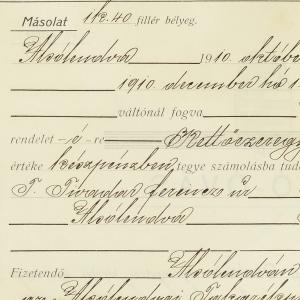 Másolat 1k2.40 fillér bélyeg.
Alsólendva 1910 októbe
1910. december hó 1
váltónál fogva
rendelet – é – re Kettőezeregy
értéke készpénzben tegye számolásba tud
T. Tivadar Ferencz úr
Alsólendva
Fizetendő Alsólendván
Alsólendvai Takarék